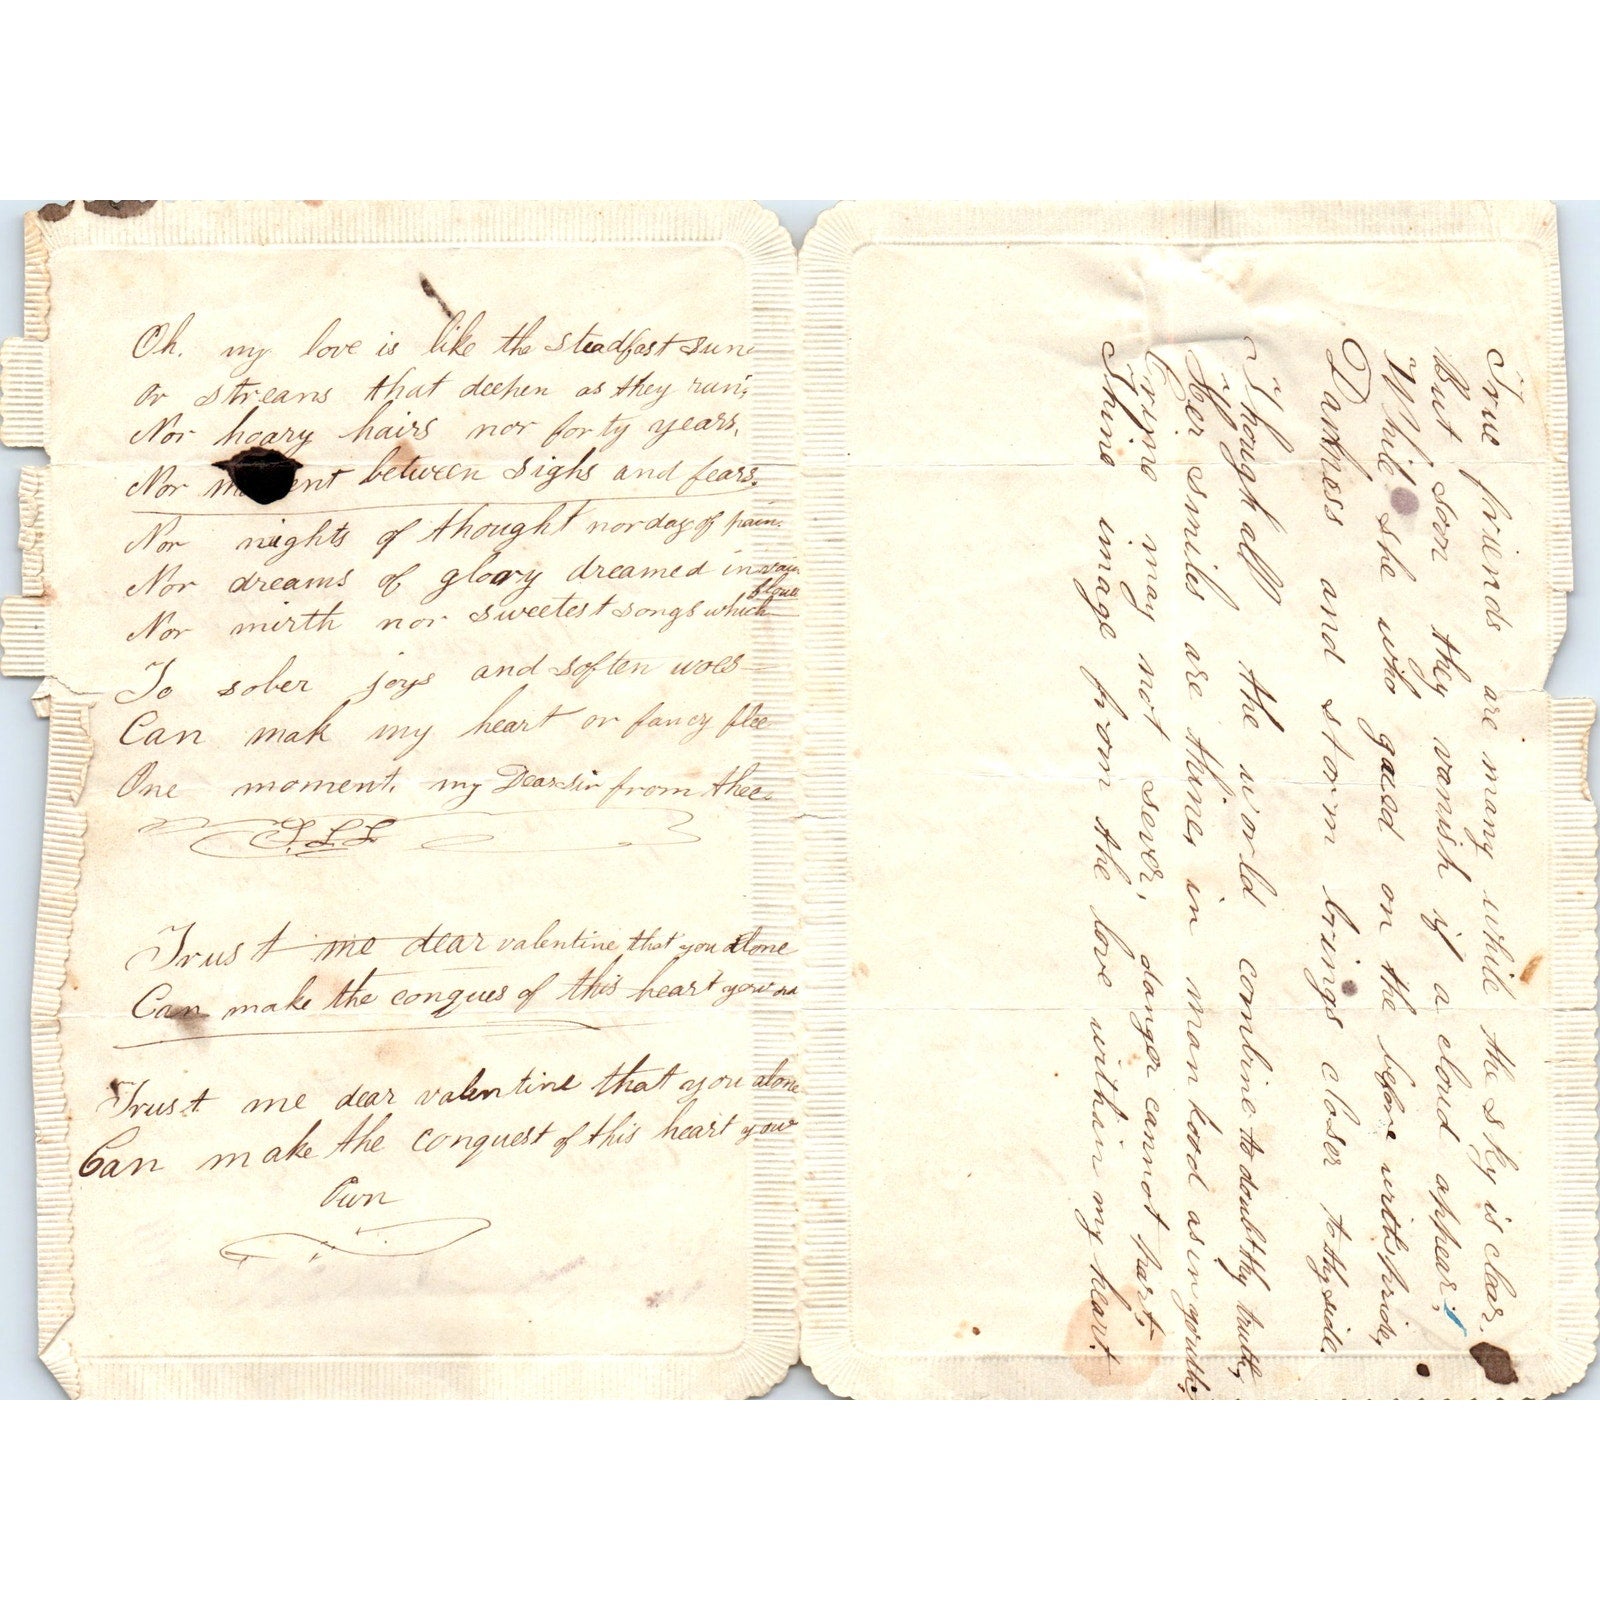 Oh. my love is like the steadfast sun
Or streans that deepen as they run;
Nor hoary hairs nor forty years,
Nor between sighs and fears.
Nor nights of thought nor day of pain.
Nor dreams of glory dreamed in vain
Nor mirth nor sweetest songs which flows
To sober joys and soften woes
Can mak my heart or fancy flee
One moment. my Dear sir from thee.
Trust me dear valentine that you alone
Can make the conques of this heart your own
Trust me dear valentine that you alone
Can make the conquest of this heart your
Own
True friends are many while the sky is clear.
But soon they vanish if a cloud appear;
While she who gazed on the before with pride,
Darkness and storm brings closer to thy side.
Though all the world combine to doubt thy truth,
Her smiles are thine, in man hood as in youth;
Crime may not sever, danger cannot part,
Thine image from the love within my heart.